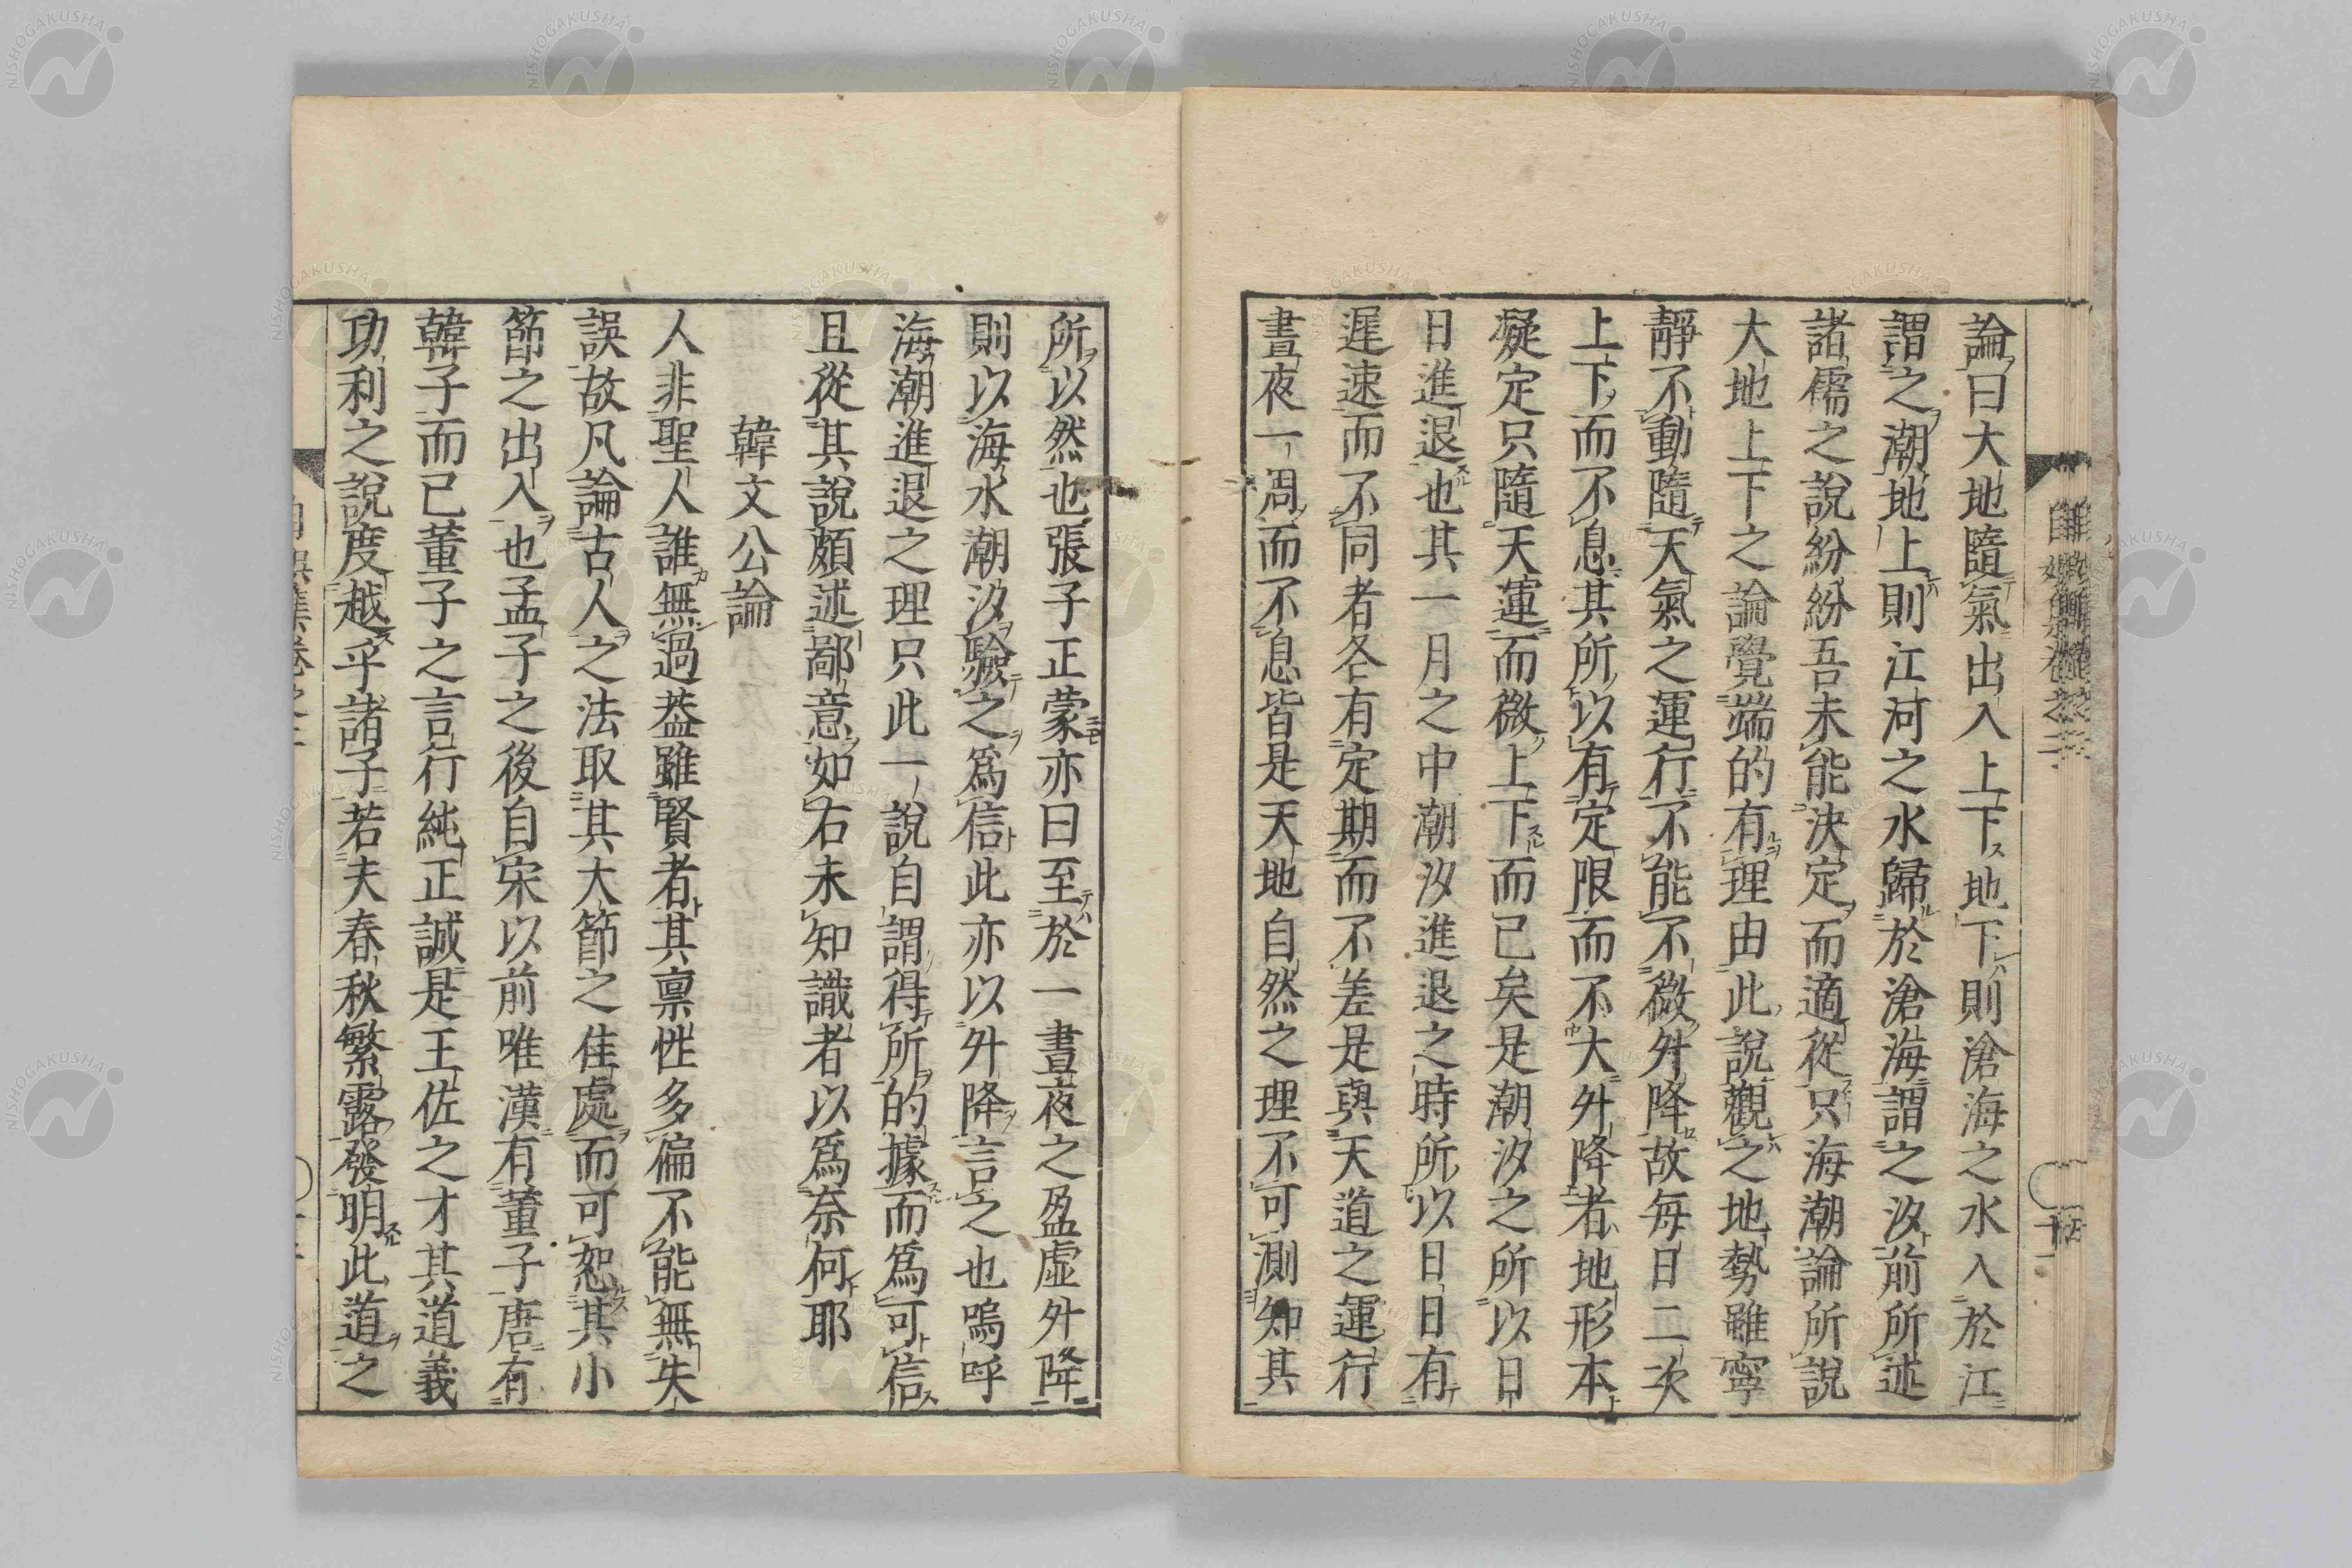 論曰大地隨氣出入上下地下則滄海之水入於江
謂之潮地上則江河之水歸於滄海謂之汐前所述
諸儒之說紛紛吾未能決定而適從只海潮論所說
大地上下之論覺端的有理由此說觀之地勢雖寧
靜不動隨天氣之運行不能不微升降故每日二次
上下而不息其所以有定限而不大升降者地形本
凝定只隨天運而微上下而已矣是潮汐之所以日
日進退也其一月之中潮汐進退之時所以日日有
遲速而不同者各有定期而不差是與天道之運行
晝夜一周而不息皆是天地自然之理不可測知其
所以然也張子正蒙亦曰至於一晝夜之盈虛升降
則以海水潮汐驗之爲信此亦以升降言之也嗚呼
海潮進退之理只此一說自謂得所的據而爲可信
且從其說頗述鄙意如右未知識者以爲奈何耶
韓文公論
人非聖人誰無過蓋雖賢者其禀性多偏不能無失
誤故凡論古人之法取其大節之佳處而可恕其小
節之出入也孟子之後自宋以前唯漢有董子唐有
韓子而已董子之言行純正誠是王佐之才其道義
功利之說度越乎諸子若夫春秋繁露發明此道之